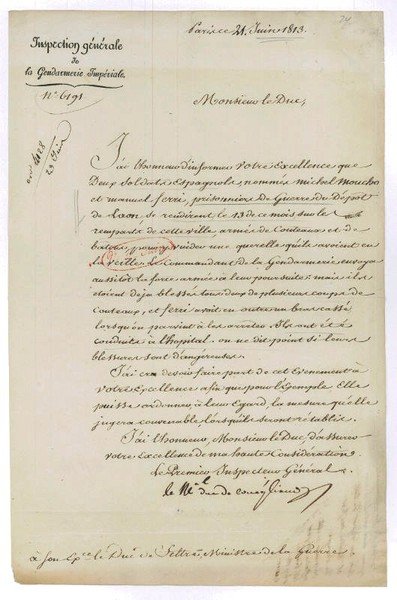 Paris ce 21 Juin 1813.
Inspection générale
de
la Gendarmerie Impériale.
N° 6191
Monsieur le Duc,
J'ai l'honneur d'informer Votre Excellence que
Deux Soldats Espagnols, nommés Michel
et Manuel Ferri, prisonniers de Guerre du Dépôt
de Laon, se rendirent le 13 de ce mois sur les
remparts de cette ville, armés de Couteaux et de
batons, pour y vider une querelle qu'ils avaient eu
la veille. Le Commandant de la Gendarmerie envoya
aussitôt la force armée à leur poursuite; mais ils
étaient déja blessés tous deux de plusieurs coups de
Couteaux, et ferri avait en outre un bras cassé
lorsqu'on parvint à les arrêter. Ils ont été
conduits à l'hôpital. on ne dit point si leurs
blessures sont dangereuses.
J'ai cru devoir faire part de cet Evènement à
Votre Excellence afin que pour l'Exemple Elle
puisse ordonner, à leur Egard, la mesure qu'elle
jugera convenable lorsqu'ils seront rétablis.
J'ai l'honneur, Monsieur le Duc, d'assurer
Votre Excellence de ma haute Considération.
Le Premier Inspecteur Général,
le Mal duc de
a Son Exce le Duc de Feltre, Ministre de la Guerre.